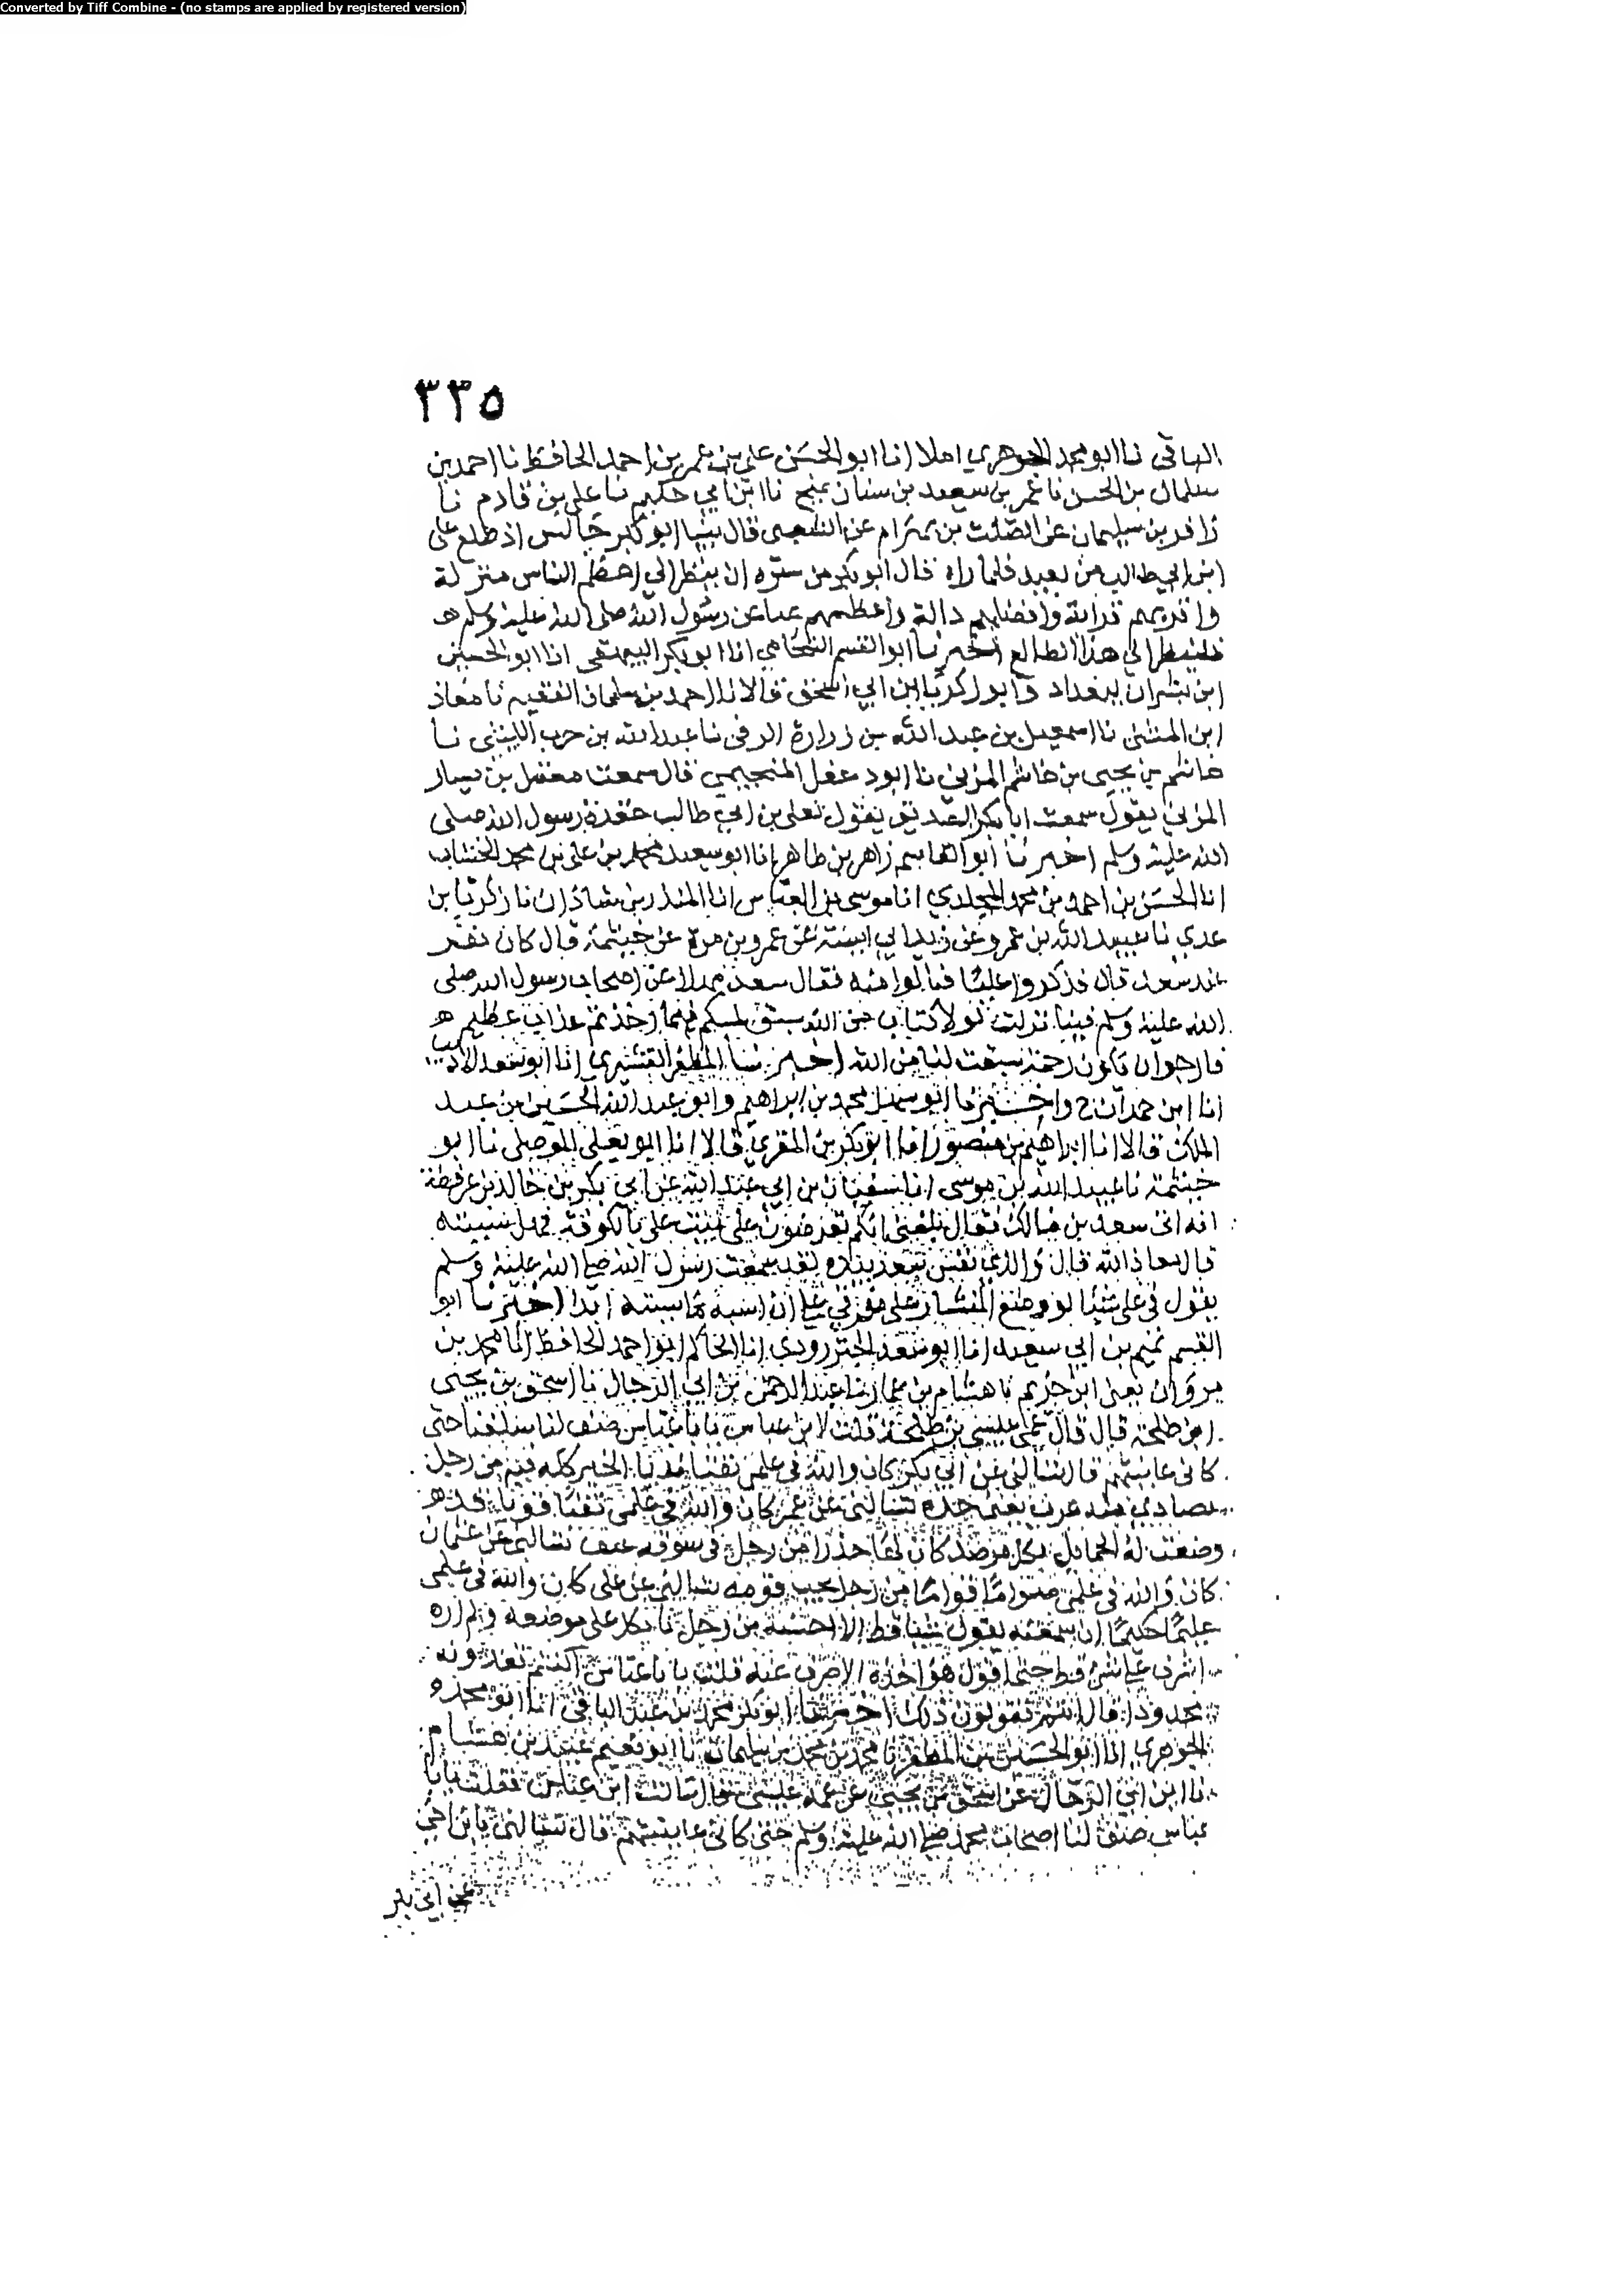 Converted by Tiff Combine - (no stamps are applied by registered version)
٣٣٥
الباقي نا ابو محمد الجوهري املا انا ابو الحسن علي بن عمر بن احمد الحافظ نا احمد بن
سلمان بن الحسن نا عمر بن سعيد بن سنان بمنبج نا ابن ابي حكيم نا علي بن قادم نا
زافر بن سليمان عن الصلت بن بهرام عن الشعبي قال بينا ابو بكر جالس اذ طلع علي
ابن ابي طالب من بعيد فلما راه قال ابو بكر من سره ان ينظر الي اعظم الناس منزلة
واقربهم قرابة وافضلهم دالة واعظمهم عن رسول الله صلى الله عليه وسلم
فلينظر الي هذا الطالع اخبرنا ابو القسم الشحامي انا ابو بكر البيهقي انا ابو الحسين
ابن بشران ببغداد وابو زكريا ابن ابي اسحق قالا نا احمد بن سلمان الفقيه نا معاذ
ابن المثنى نا اسمعيل بن عبد الله بن زرارة الرقي نا عبد الله بن حرب الليثي نا
هاشم بن يحيى بن هاشم المزني نا ابو دغفل الهجيمي قال سمعت معقل بن يسار
المزني يقول سمعت ابا بكر الصديق يقول لعلي بن ابي طالب عقدة رسول الله صلى
الله عليه وسلم اخبرنا ابو القاسم زاهر بن طاهر انا ابو سعيد محمد بن علي بن محمد الخشاب
انا الحسن بن احمد بن محمد المخلدي انا موسى بن العباس انا المنذر بن شاذان نا زكريا بن
عدي نا عبيد الله بن عمرو عن زيد ابي انيسة عن عمرو بن مرة عن خيثمة قال كان نفر
عند سعد قال فذكروا عليا فنالوا منه فقال سعد مهلا عن اصحاب رسول الله صلى
الله عليه وسلم فينا نزلت لولا كتاب من الله سبق لمسكم فيما اخذتم عذاب عظيم
فارجوا ان تكون رحمة سبقت لنا من الله اخبرنا ابو المظفر القشيري انا ابو سعد الاديب
انا ابن حمدان ح واخبرنا ابو سهل محمد بن ابراهيم وابو عبد الله الحسين بن عبد
الملك قالا انا ابراهيم بن منصور انا ابو بكر بن المقري قالا انا ابو يعلى الموصلي نا ابو
خيثمة نا عبيد الله بن موسى انا سفيان بن ابي عبد الله عن ابي بكر بن خالد بن عرفطة
انه اتى سعد بن مالك فقال بلغني انكم تعرضون على سب علي بالكوفة فهل سببته
قال معاذ الله قال والذي نفس سعد بيده لقد سمعت رسول الله صلى الله عليه وسلم
يقول في علي شيئا لو وضع المنشار على مفرقي على ان اسبه ما سببته ابدا اخبرنا ابو
القسم تميم بن ابي سعيد انا ابو سعد الجنزرودي انا الحاكم ابو احمد الحافظ انا محمد بن
مروان يعني ابن خريم نا هشام بن عمار نا عبد الرحمن بن ابي الرجال نا اسحق بن يحيى
ابن طلحة قال قال عمي عيسى بن طلحة قلت لابن عباس يا با عباس صف لنا سلفنا حتى
كاني عاينتهم قال تسالني عن ابي بكر كان والله في علمي تقيا الخير كله فيه من رجل
يصادي منه غرب يعني حده تسالني عن عمر كان والله في علمي تقيا قويا قد
وضعت له الحبايل بكل مرصد كان لها حذرا من رجل في سوقه عنف تسالني عن عثمان
كان والله في علمي صواما قواما من رجل يحب قومه تسالني عن علي كان والله في علمي
عليما حكيما ان سمعته يقول شيئا قط الا احسنه من رجل تا يكل على موضعه ولم اره
اشرف على شي قط حتى اقول هو اخذه الا صرف عنه قلت يا با عباس اكنتم تعدونه
محدودا قال انتم تقولون ذلك اخبرنا ابو بكر محمد بن عبد الباقي انا ابو محمد
الجوهري انا ابو الحسين بن المظفر نا محمد بن محمد بن سليمان نا ابو نعيم عبيد بن هشام
نا ابن ابي الرجال عن اسحق بن يحيى عن عمه عيسى قال سالت ابن عباس فقلت يا با
عباس صف لنا اصحاب محمد صلى الله عليه وسلم حتى كاني عاينتهم قال تسالني يا بن اخي
عن ابي بكر